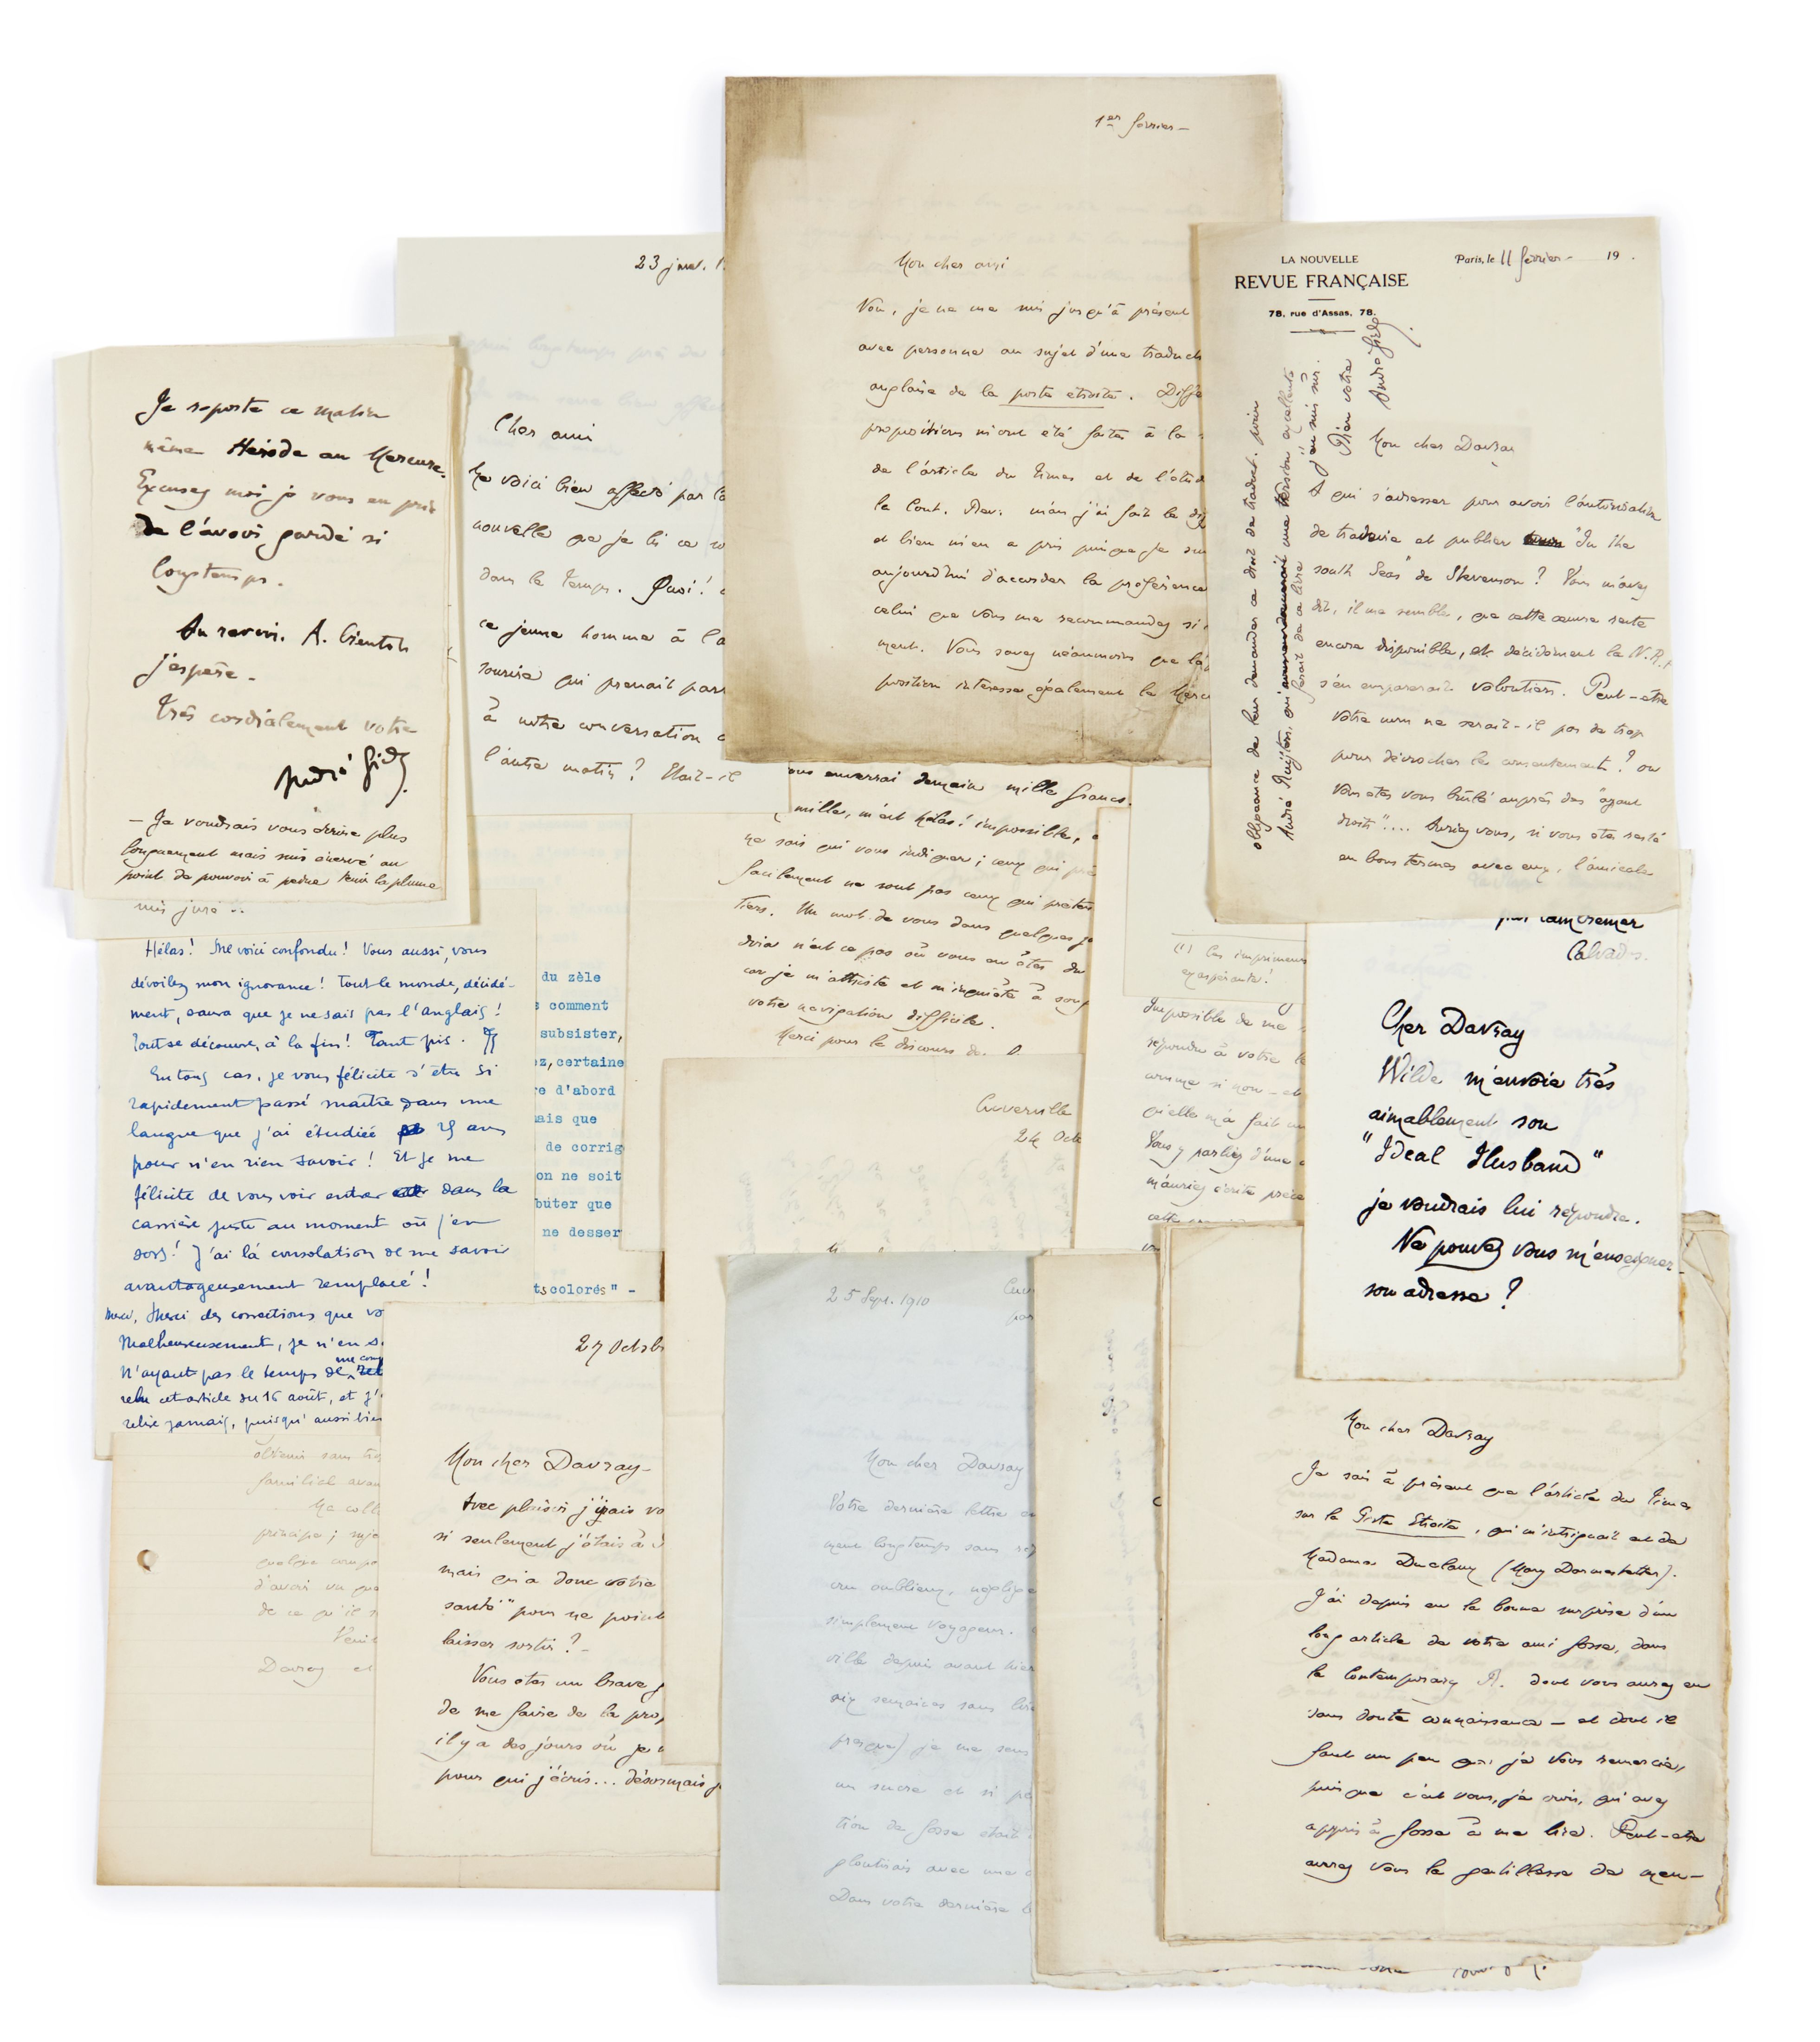 1er février —
Mon cher ami
Non, je ne me suis jusqu'à présent
avec personne au sujet d'une traduct
anglaise de la porte étroite. Diffé
propositions m'ont été faites à la
de l'article du Times et de l'étud
la Cont. Rev. mais j'ai fait le
et bien m'en a pris puisque je
aujourd'hui d'accorder la préférence
celui que vous me recommandez si
ment. Vous savez néanmoins que la
position intéresse également le Merc
LA NOUVELLE
REVUE FRANÇAISE
78, rue d'Assas, 78.
Paris, le 11 février — 19 .
Mon cher Davray
A qui s'adresser pour avoir l'autorisation
de traduire et publier "In the
south Seas" de Stevenson ? Vous m'avez
dit, il me semble, que cette œuvre reste
encore disponible, et décidément la N.R.F
s'en emparerait volontiers. Peut-etre
votre nom ne serait-il pas de trop
pour décrocher le consentement ? ou
vous etes vous brûlé auprès des "ayant
droits".... Auriez vous, si vous etes resté
en bons termes avec eux, l'amicale
obligeance de leur demander ce droit de traduct. pour
André Ruijters, qui une version excellente
ferait de ce livre
j'en suis sûr.
Bien votre
André Gide.
23 janv. 1
Cher ami
Me voici bien affecté par la
nouvelle que je lis ce
dans le Temps. Quoi !
ce jeune homme à l'a
sourire qui prenait part
à notre conversation
l'autre matin ? Etait-il
Je reporte ce matin
même Hérode au Mercure.
Excusez moi je vous en prie
de l'avoir gardé si
longtemps.
Au revoir. A bientôt
j'espère -
très cordialement votre
André Gide.
— Je voudrais vous écrire plus
longuement mais suis énervé au
point de pouvoir à peine tenir la plume
suis juré
ous enverrai demain mille francs.
mille, m'est hélas ! impossible,
ne sais qui vous indiquer ; ceux qui
facilement ne sont pas ceux qui préten
tiers. Un mot de vous dans quelques
dira n'est ce pas où vous en êtes de
car je m'attriste et m'inquiète à song
votre navigation difficile.
Merci pour le discours de. D.
Hélas ! Me voici confondu ! Vous aussi, vous
dévoilez mon ignorance ! Tout le monde, décidé-
ment, saura que je ne sais pas l'anglais !
Tout se découvre, à la fin ! Tant pis.
En tous cas, je vous félicite d'être si
rapidement passé maître dans une
langue que j'ai étudiée 25 ans
pour n'en rien savoir ! Et je me
félicite de vous voir entrer dans la
carrière juste au moment où j'en
sors ! J'ai là consolation de me savoir
avantageusement remplacé !
Merci, Merci des corrections que vo
Malheureusement, je n'en
N'ayant pas le temps de
relu cet article du 16 août, et j'
relire jamais, puisqu'aussi bien
du zèle
s comment
subsister,
ez, certaine
re d'abord
ais que
de corrig
on ne soit
buter que
ne desser
ts colorés" -
(1) Ces imprimeurs
exaspérants !
Impossible de me
répondre à votre le
comme si non - et
qu'elle m'a fait
Vous y parliez d'une
m'auriez écrite
cette
par Lamberville
Calvados.
Cher Davray
Wilde m'envoie très
aimablement son
"Ideal Husband"
je voudrais lui répondre.
Ne pouvez vous m'enseigner
son adresse ?
Cuverville
24 Oct
27 Octob
Mon cher Davray -
Avec plaisir j'irais vo
si seulement j'étais à
mais qu'a donc votre
santé" pour ne point
laisser sortir ? -
Vous etes un brave
de me faire de la pro
il y a des jours où je
pour qui j'écris... désormais j
obtenir sans
familial avan
Ma coll
principe ;
quelque compe
d'avoir vu que
de ce qu'il
Davray et
25 Sept. 1910
Cuv
par
Mon cher Davray
Votre dernière lettre
ment longtemps sans
cru oublieux, néglige
simplement voyageur.
ville depuis avant hier
six semaines sans lire
presque) je me sens
un sucre et si
tion de Gosse était
gloutirais avec une
Dans votre dernière le
Mon cher Davray
Je sais à présent que l'article du Times
sur la Porte Etroite, qui m'intriguait est de
Madame Duclaux (Mary Darmesteter).
J'ai depuis eu la bonne surprise d'un
long article de votre ami Gosse, dans
la Contemporary R. dont vous aurez eu
sans doute connaissance — et dont il
faut un peu que je vous remercie,
puisque c'est vous, je crois, qu'avez
appris à Gosse à me lire. Peut-etre
aurez vous la gentillesse de m'en-